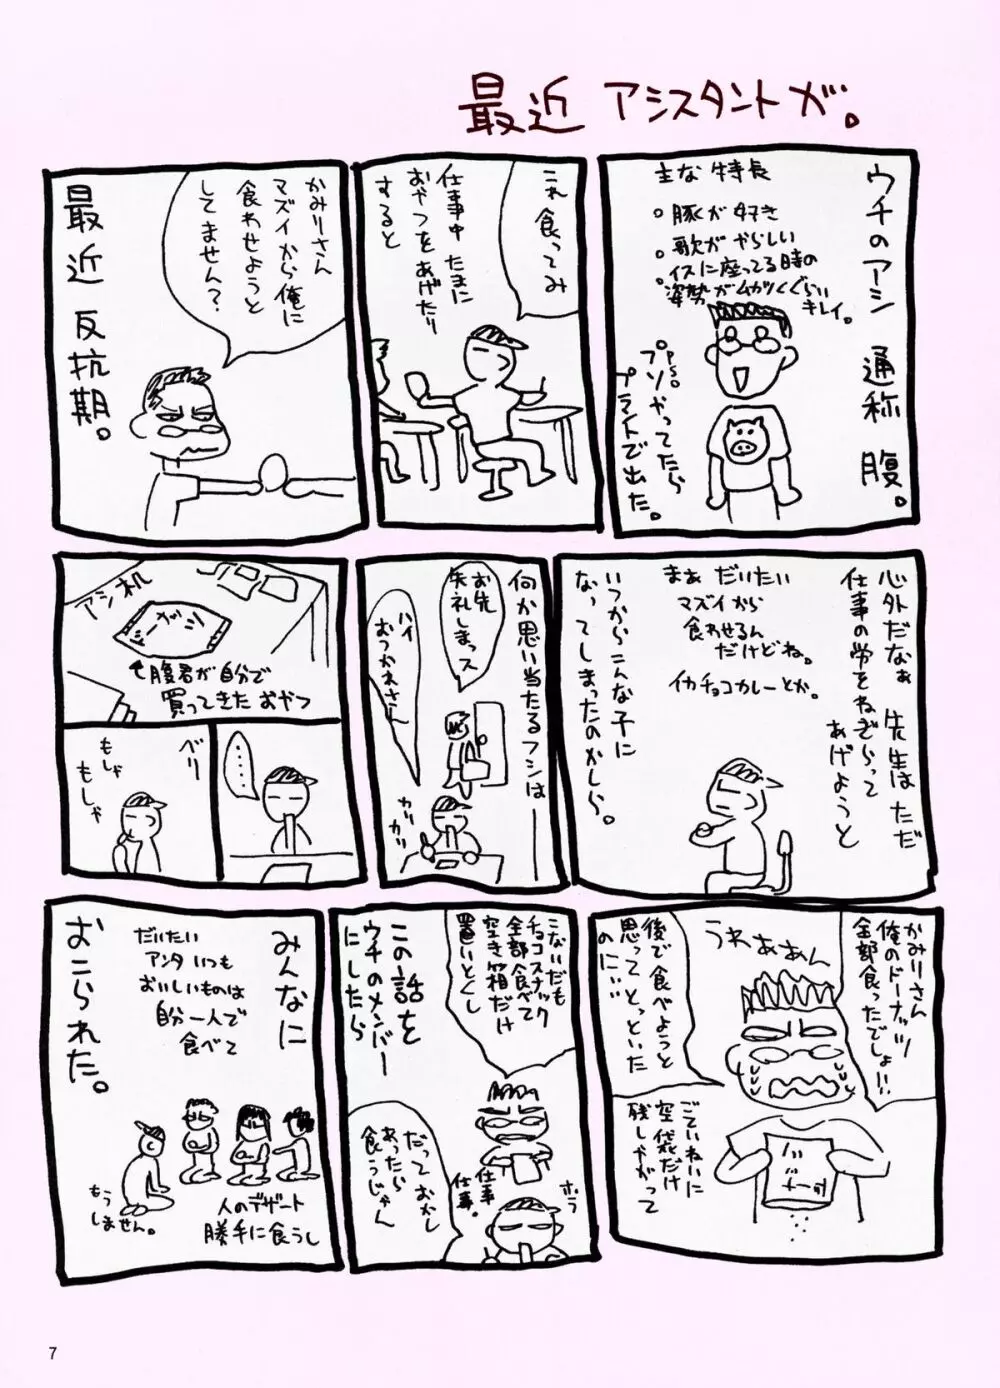 最近 アシスタントが。
ウチのアシ 通称 腹。
主な特長
。豚が好き
。歌がやらしい
。イスに座ってる時の
姿勢がムカツくぐらい
キレイ。
プソやってたら
プラントで出た。
これ食ってみ
仕事中 たまに
おやつをあげたり
すると
かみりさん
マズイから俺に
食わせようと
してません?
最近 反抗期。
心外だなぁ 先生はただ
仕事の労をねぎらって
あげようと
まぁ だいたい
マズイから
食わせるん
だけどね。
イカチョコカレーとか。
いつからこんな子に
なってしまったのかしら。
何か思い当たるフシは
お先
失礼しまっス
ハイ
おつかれさん
カリ
カリ
アシ机
シガー
腹君が自分で
買ってきた おやつ
……
ベリ
もしゃ
もしゃ
かみりさん
俺のドーナッツ
全部食ったでしょ!!
うわぁぁん
後で食べようと
思って とっといた
のに…
ごていねいに
空袋だけ
残しやがって
こないだも
チョコスナック
全部食べて
空き箱だけ
置いとくし
この話を
ウチのメンバー
にしたら
ホラ
仕事
仕事。
だって おかし
あったら
食うじゃん
みんなに
おこられた。
だいたい
アンタ いつも
おいしいものは
自分一人で
食べて
人のデザート
勝手に食うし
もう
しません。
7